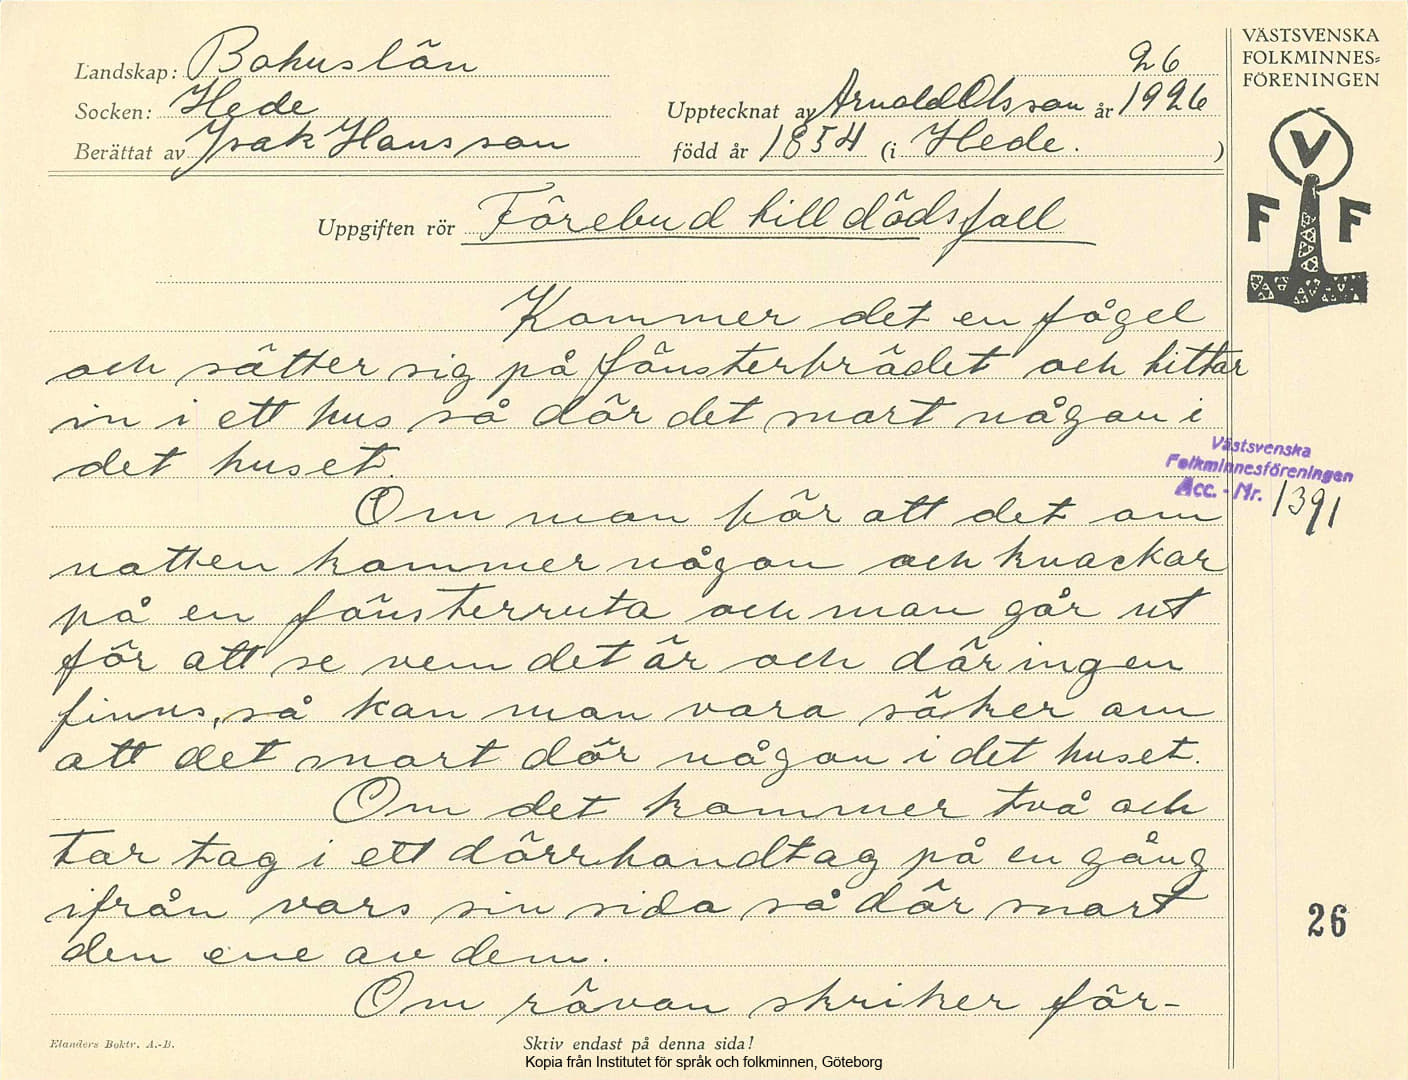 Landskap: Bohuslän 26
Socken: Hede Upptecknat av Arnold Olsson år 1926
Berättat av Isak Hansson född år 1854 (i Hede. )
Uppgiften rör Förebud till dödsfall
Kommer det en fågel
och sätter sig på fönsterbrädet och tittar
in i ett hus så dör det snart någon i
det huset.
Om man hör att det om
natten kommer någon och knackar
på en fönsterruta och man går ut
för att se vem det är och där ingen
finns, så kan man vara säker om
att det snart dör någon i det huset.
Om det kommer två och
tar tag i ett dörrhandtag på en gång
ifrån vars sin sida så dör snart
den ene av dem.
Om räven skriker för-
Elanders Boktr. A.-B. Skriv endast på denna sida!
Kopia från Institutet för språk och folkminnen, Göteborg
VÄSTSVENSKA
FOLKMINNES=
FÖRENINGEN
V
F F
Västsvenska
Folkminnesföreningen
Acc. - Nr. 1391
26